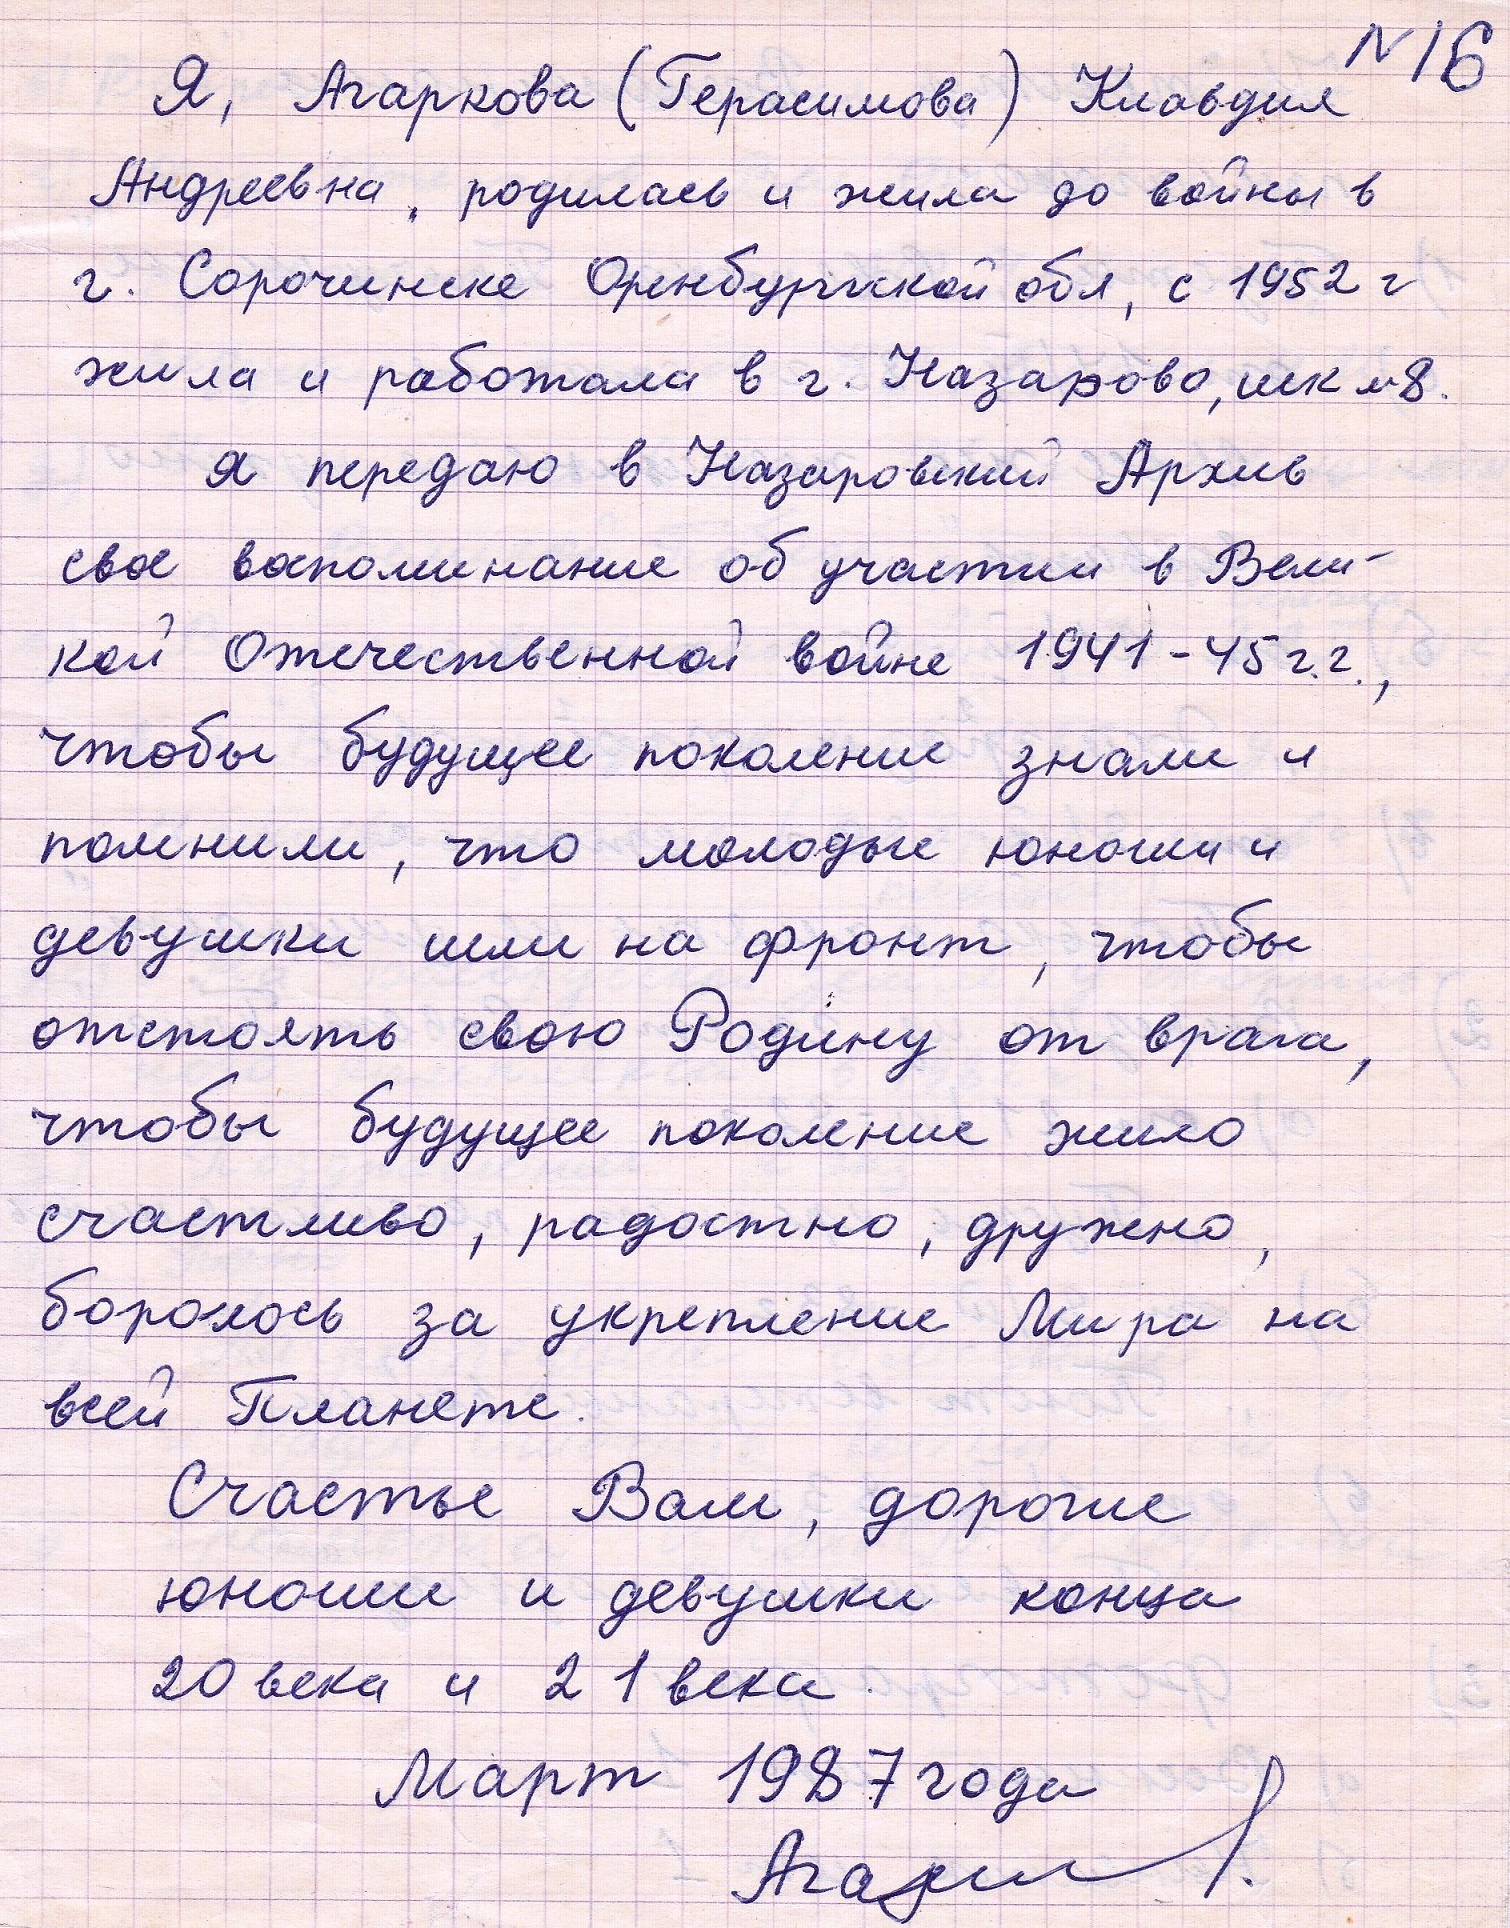 N 16
Я, Агаркова (Герасимова) Клавдия
Андреевна, родилась и жила до войны в
г. Сорочинске Оренбургской обл, с 1952 г
жила и работала в г. Назарово, шк №8.
Я передаю в Назаровский Архив
свое воспоминание об участии в Вели-
кой Отечественной войне 1941-45 г.г.,
чтобы будущее поколение знали и
помнили, что молодые юноши и
девушки шли на фронт, чтобы
отстоять свою Родину от врага,
чтобы будущее поколение жило
счастливо, радостно, дружно,
боролось за укрепление Мира на
всей Планете.
Счастье Вам, дорогие
юноши и девушки конца
20 века и 21 века.
Март 1987 года